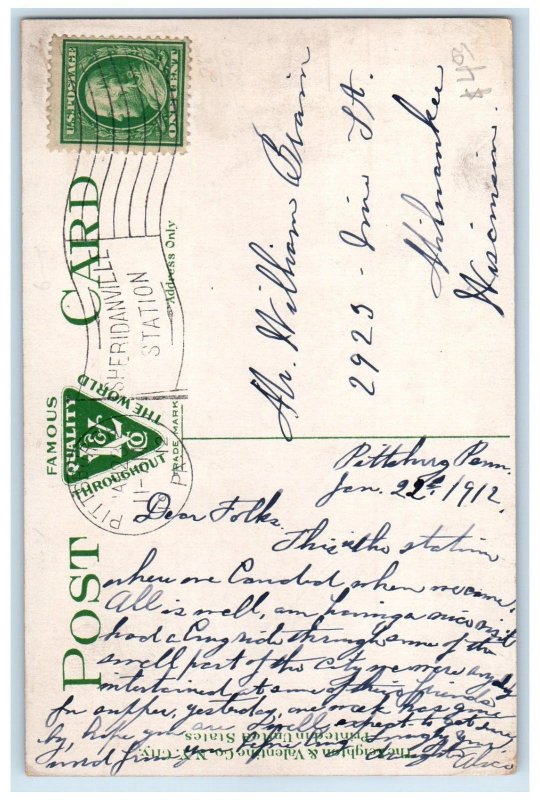 U.S. POSTAGE
ONE CENT
$4.00
POST CARD
Address Only
SHERIDANVILLE
STATION
PITTSB
PA
FAMOUS
QUALITY
THROUGHOUT
THE WORLD
TRADE MARK
Mr. William Brain
2923 - Vine St.
Milwaukee
Wisconsin.
Pittsburg Penn.
Jan. 22th 1912.
Dear Folks.
This is the station
where we landed, when we came.
All is well, am having a nice visit
had a long ride through some of the
swell part of the city we were
entertained at some of their friends
for supper, yesterday, one week has gone
by hope you are well, expect to get
word from you
The Leighton & Valentine Co. N.Y. City.
Printed in United States.